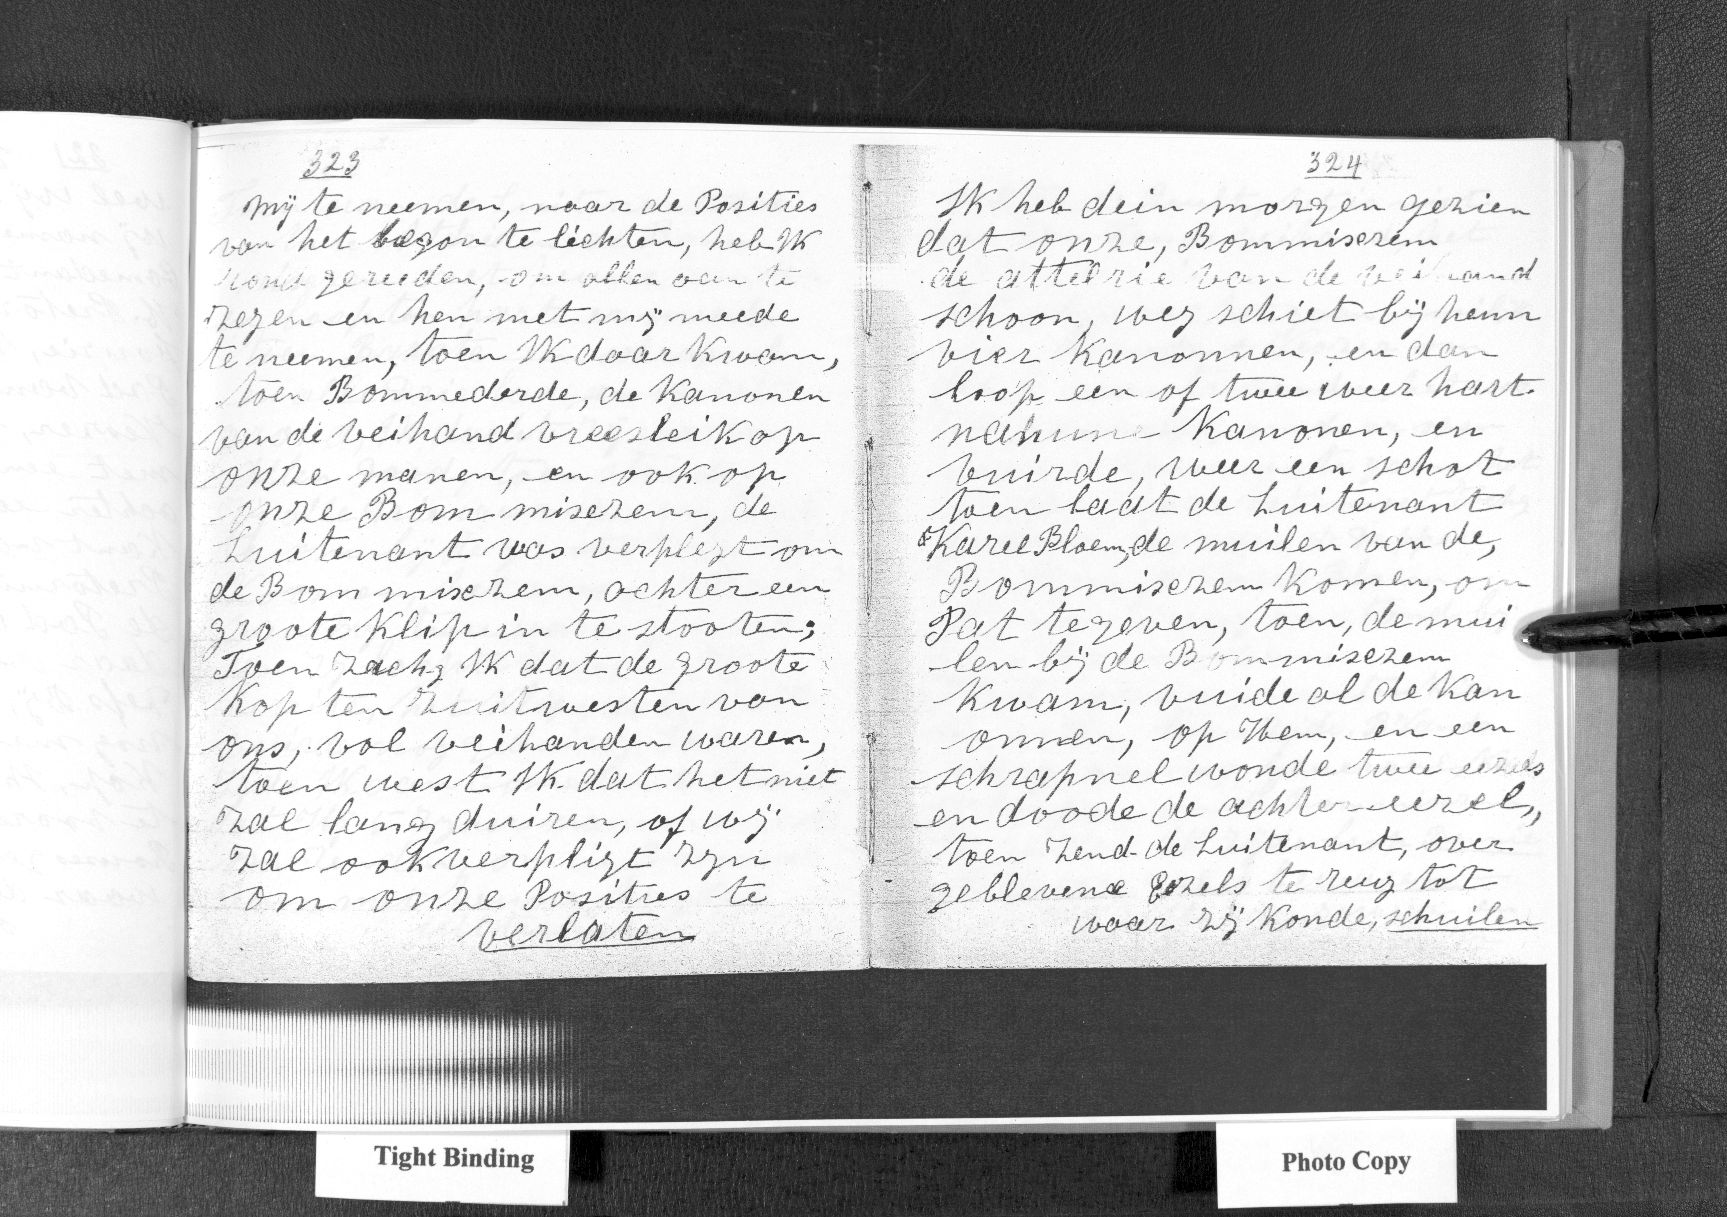 323
mij te neemen, naar de Posities
van het begon te lichten, heb Ik
rond gereeden, om allen aan te
zegen en hen met mij meede
te neemen, toen Ik daar kwam,
toen Bommederde, de Kanonen
van de veihand vreesleik op
onze manen, en ook op
onze Bommiszem, de
Luitenant was verplegt om
de Bommiszem, achter een
groote klip in te stooten;
Toen zachg Ik dat de groote
Kop ten Zuitwesten van
ons, vol veihanden waren,
toen west Ik dat het niet
zal lang duiren, of wij
zal ook verpligt zyn
om onze Posities te
verlaten
324
Ik heb dein morgen gezien
dat onze, Bommiszem
de attelrie van de veihand
schoon, weg schiet bij hem
vier Kanonnen, en dan
loop een of twee weer hart
na Kanonen, en
vuirde, weer een schot
toen laat de Luitenant
Karel Bloem, de muilen van de,
Bommiszem komen, om
Pat te geven, toen, de mui
len bij de Bommiszem
kwam, vuide al de Kan
onnen, op Hem, en een
schrapnel wonde twee eezels
en doode de achter eezel,,
toen zend de Luitenant, over
geblevene Eezels te rug tot
waar zij konde, schuilen
Tight Binding
Photo Copy